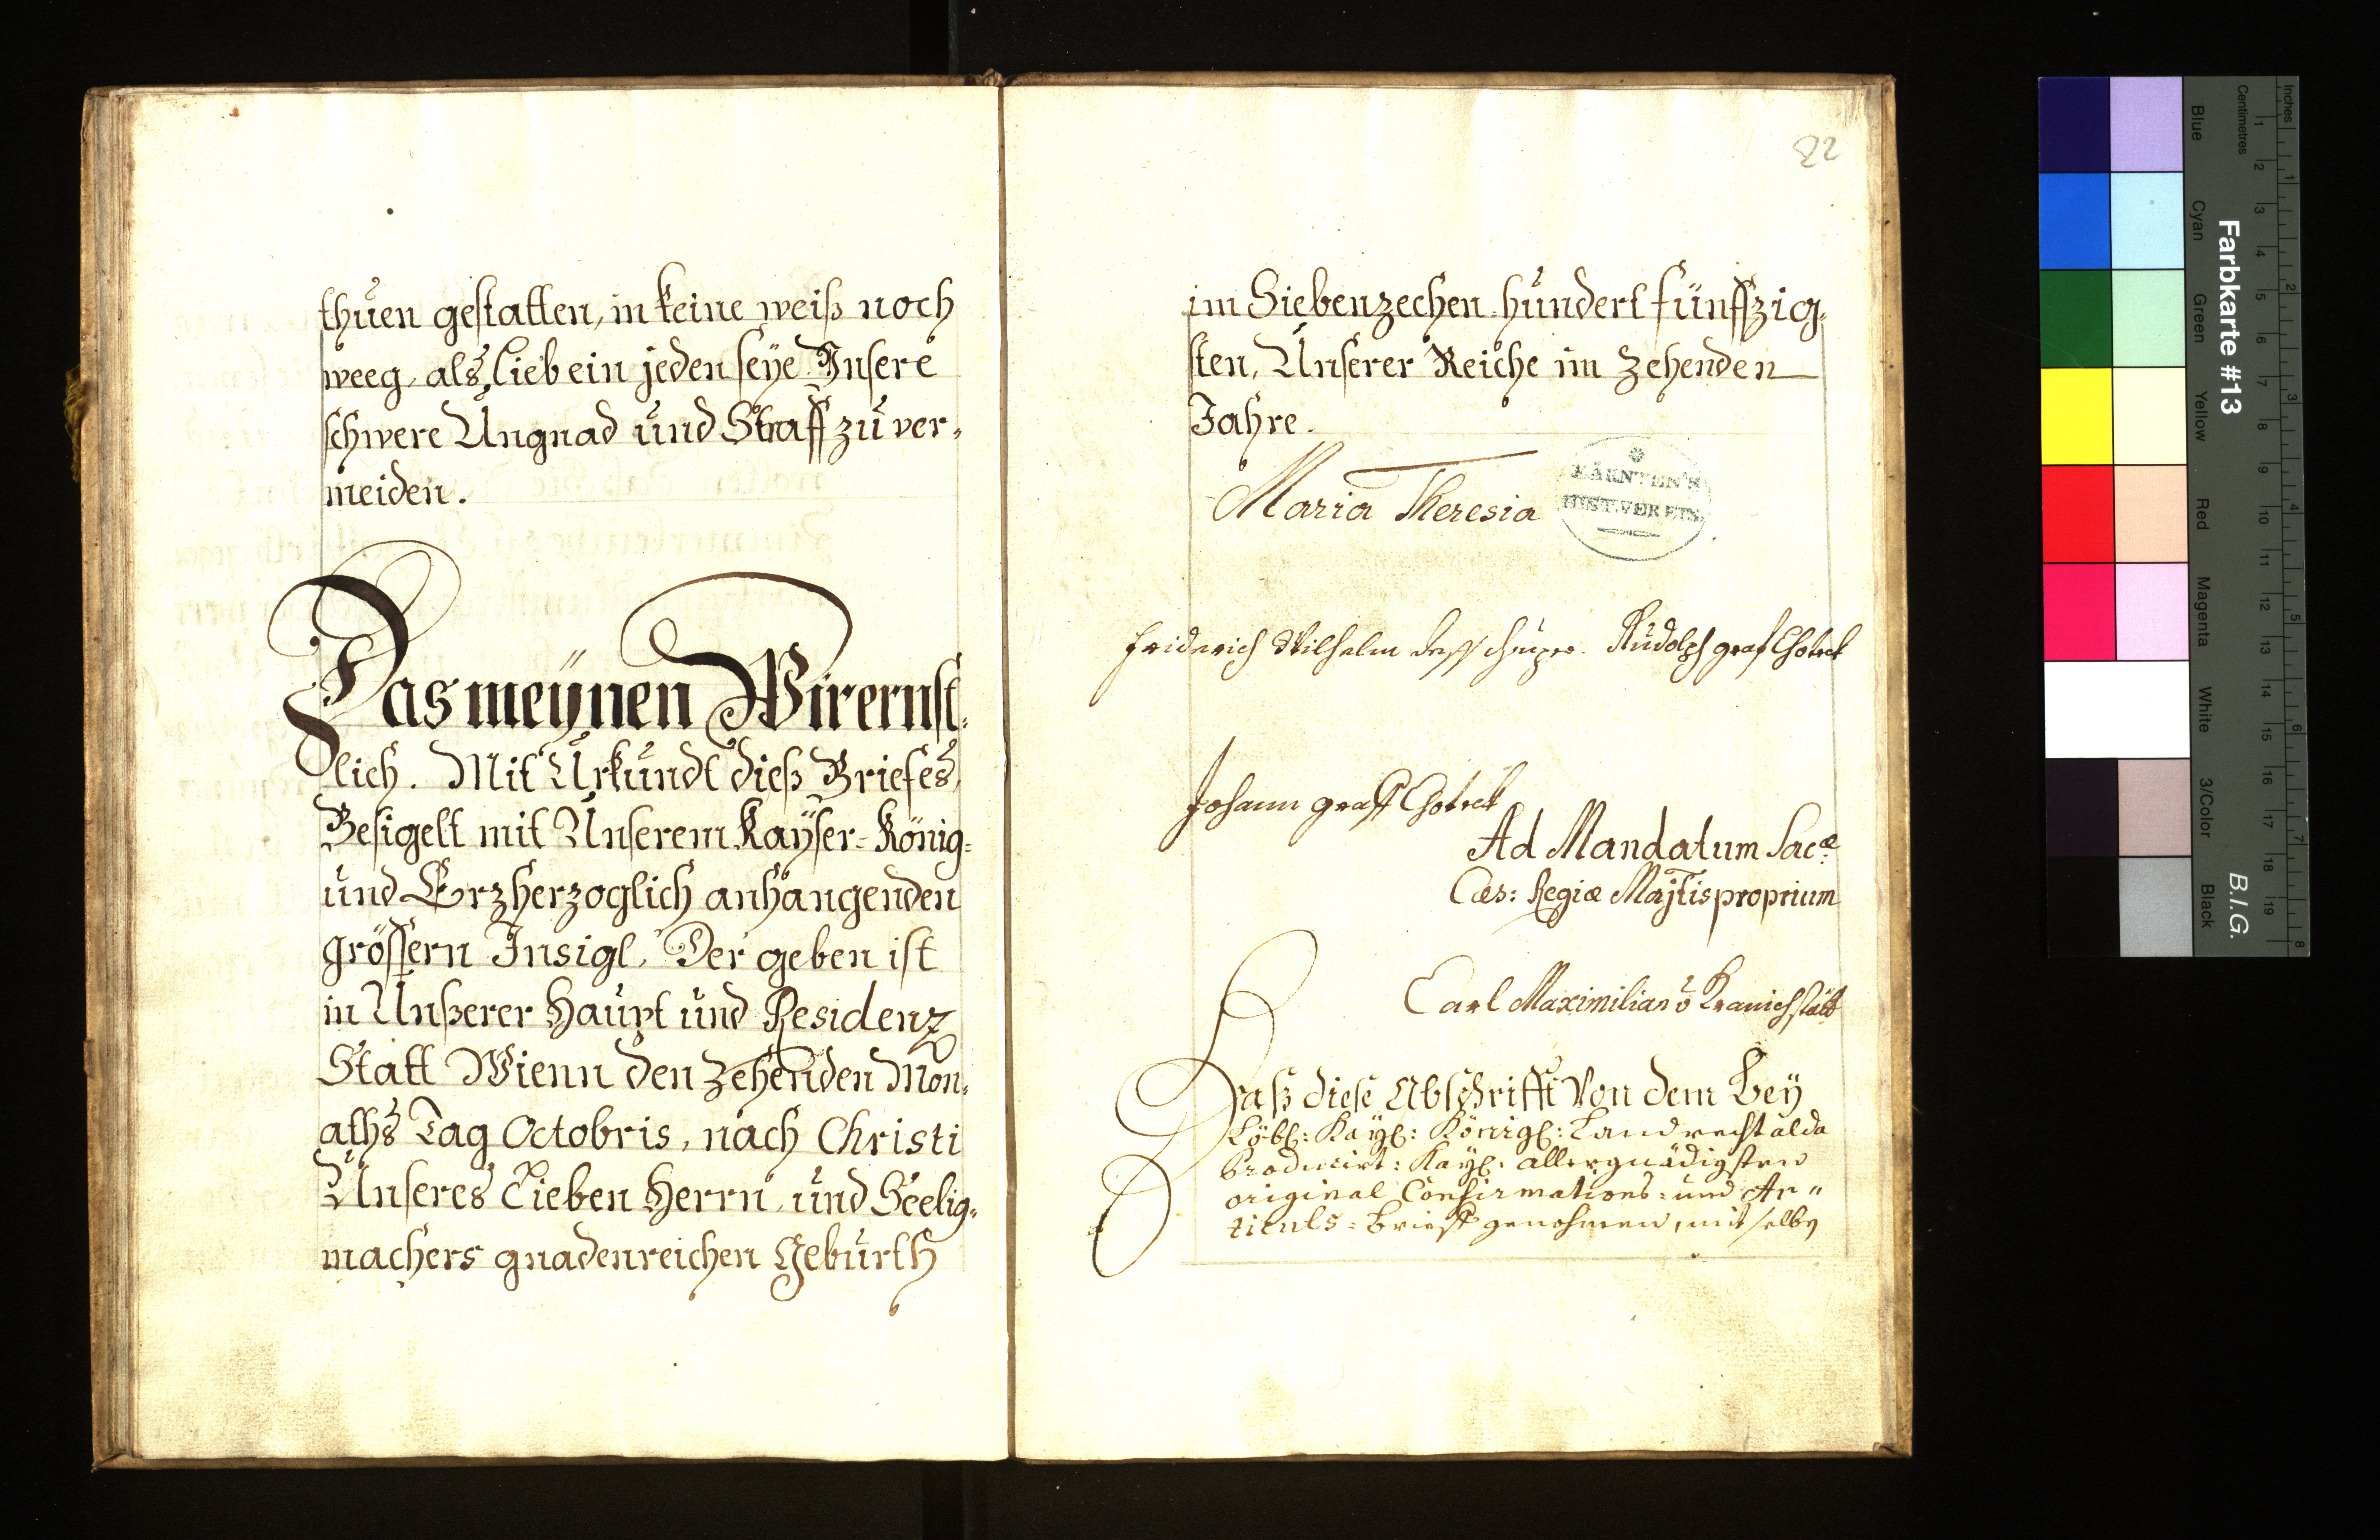 thuen gestatten, in keine weiß noch
weeg, als lieb ein jeden seye Unsere
schwere Ungnad und Straff zu ver,
meiden.
Das meÿnen Wir ernst,
lich. Mit Urkundt dieß Briefes,
Besigelt mit Unserem Kaÿser= König=
und Erzherzoglich anhangenden
grössern Insigl, Der geben ist
in Unßerer Haupt und Residenz
Statt Wienn den Zehenden Mon,
aths Tag Octobris, nach Christi
Unseres Lieben Herrn, und Seelig,
machers gnadenreichen Geburth
22
im Siebenzechen hundert fünffzig,
sten, Unserer Reiche im Zehenden
Jahre.
Maria Theresia
KÄRNTEN'S
HIST. VEREIN
Friderich Wilhelm Rudolph graf Chotek
Johann graff Chotek
Ad Mandatum Sac.æ
Cæs: Regiæ Majtis proprium
Carl Maximilian v Kranichstätt
Daß diese Abschrifft von dem Beÿ
Löbl: Kaÿl: Königl: Landrecht alda
Producirt: Kaÿl: allergnädigsten
original Confirmations= und Ar"
ticuls= Brieff genohmen, mit selben
Inches
Centimetres
1 2 3 4 5 6 7 8
1 2 3 4 5 6 7 8 9 10 11 12 13 14 15 16 17 18 19
Farbkarte #13
B.I.G.
Blue
Cyan
Green
Yellow
Red
Magenta
White
3/Color
Black